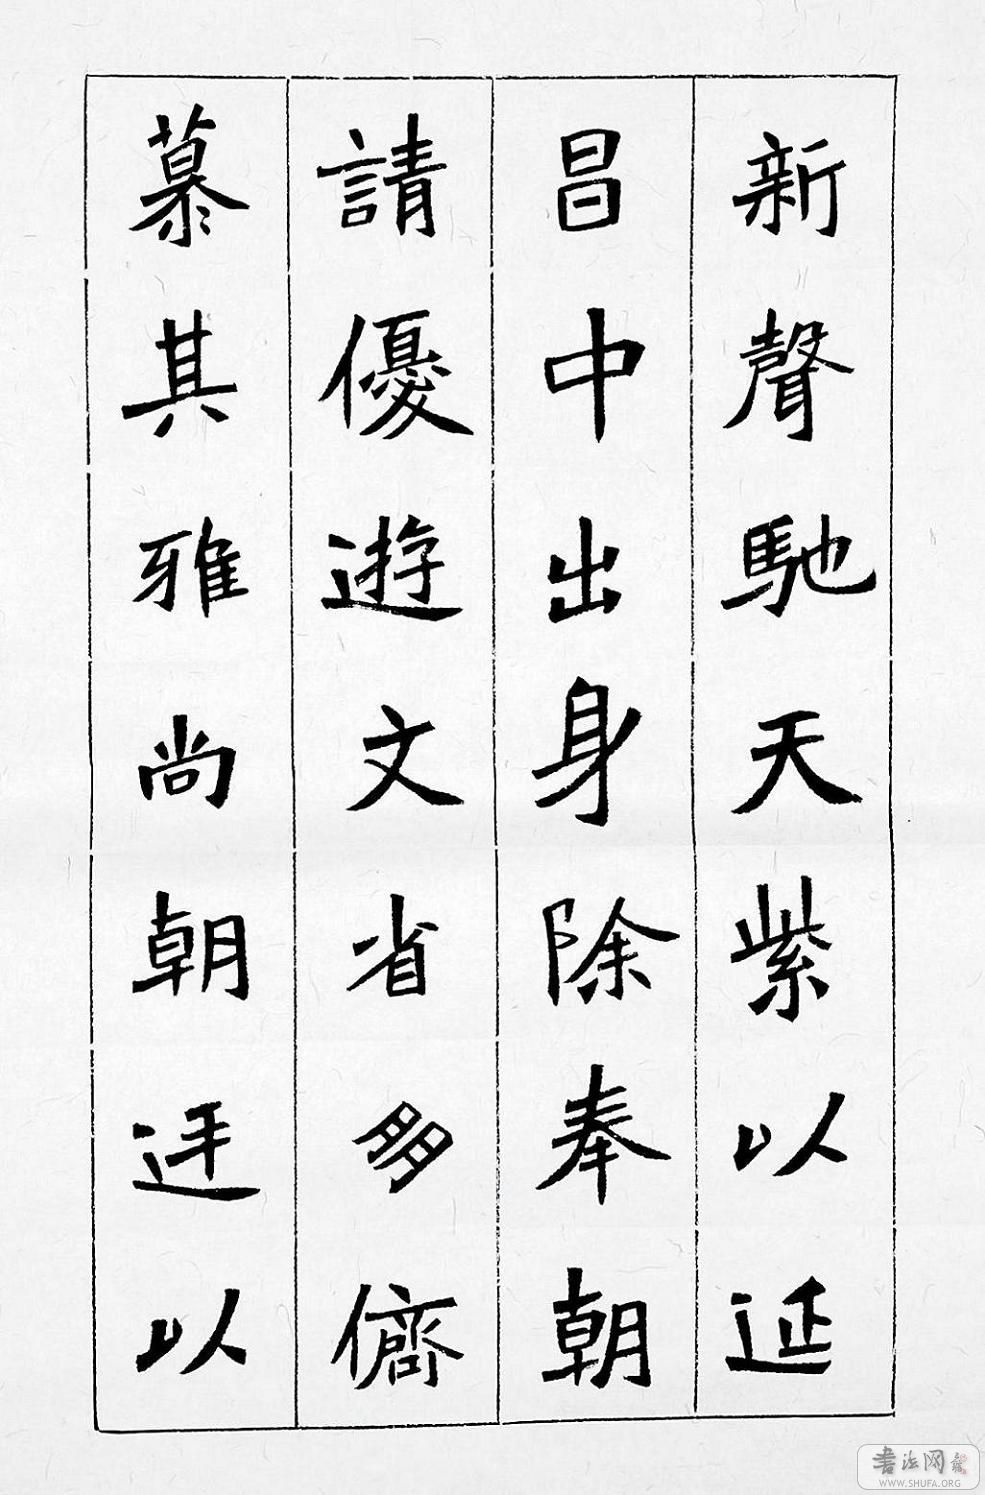 新聲馳天紫以延
昌中出身除奉朝
請優遊文省多儕
慕其雅尚朝廷以
書法网
WWW.SHUFA.ORG